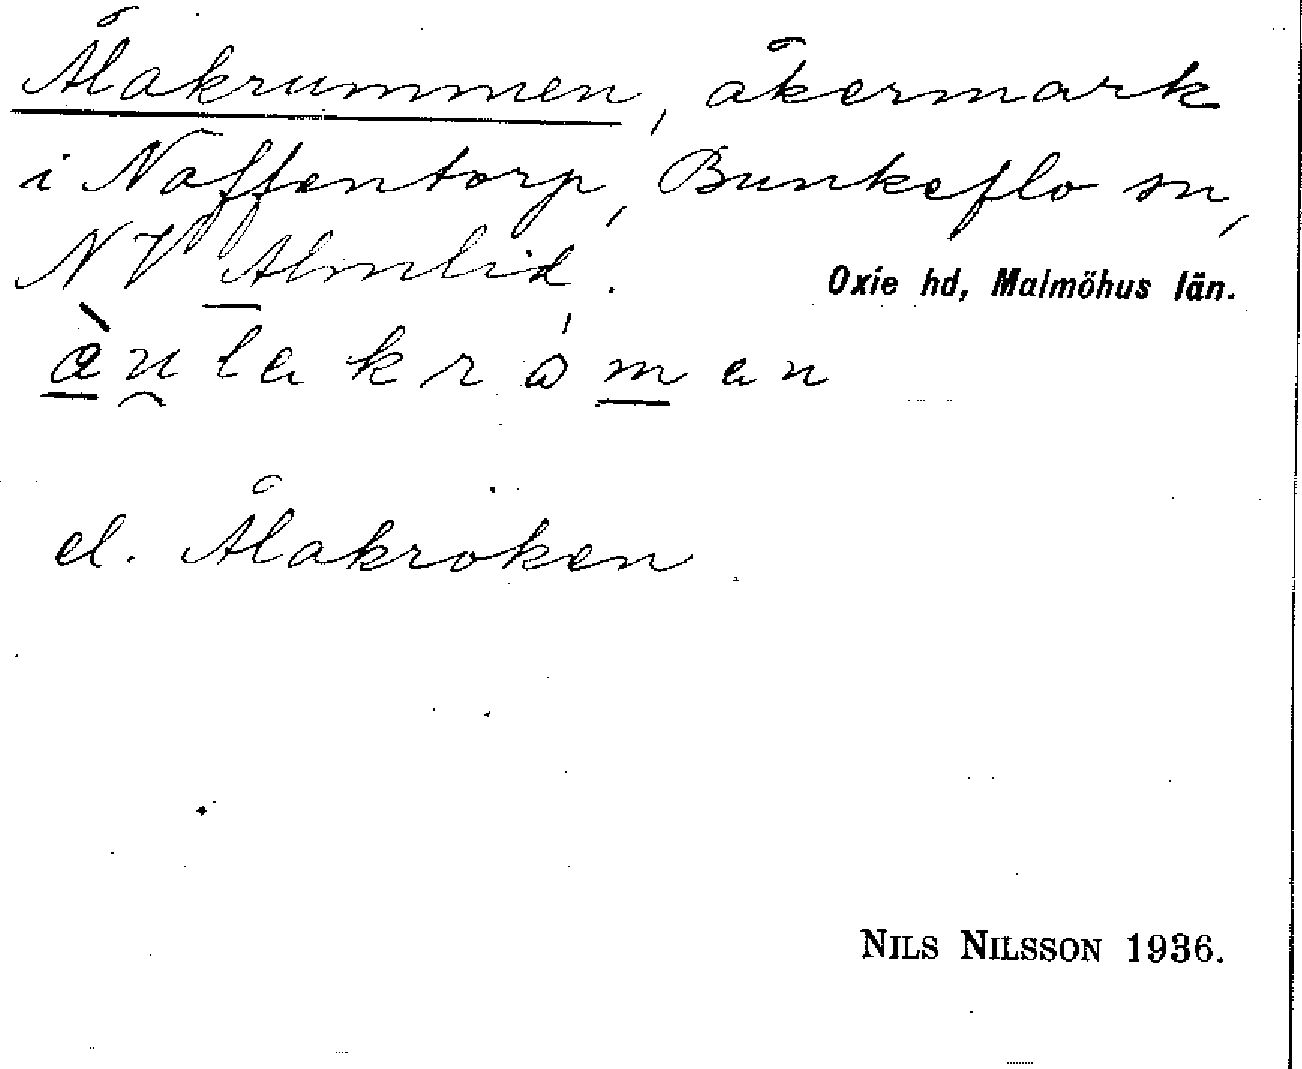 Ålakrummen, åkermark
i Naffentorp, Bunkeflo sn,
NV Almlid.
Oxie hd, Malmöhus län.
el. Ålakroken
NILS NILSSON 1936.